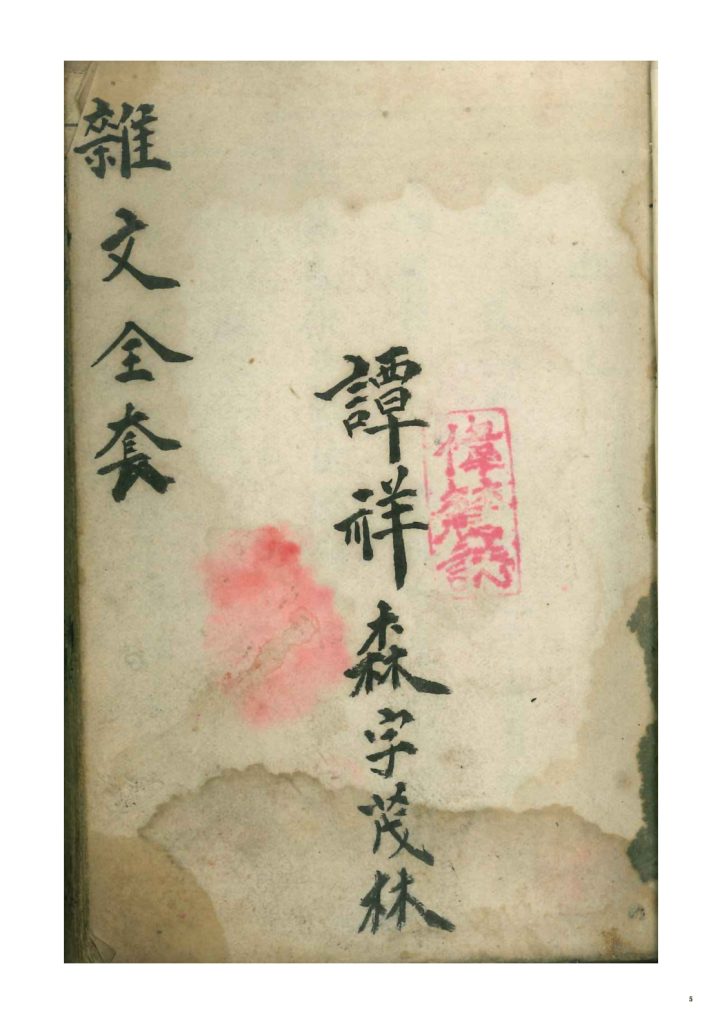 譚祥森字茂林
雜文全套
5